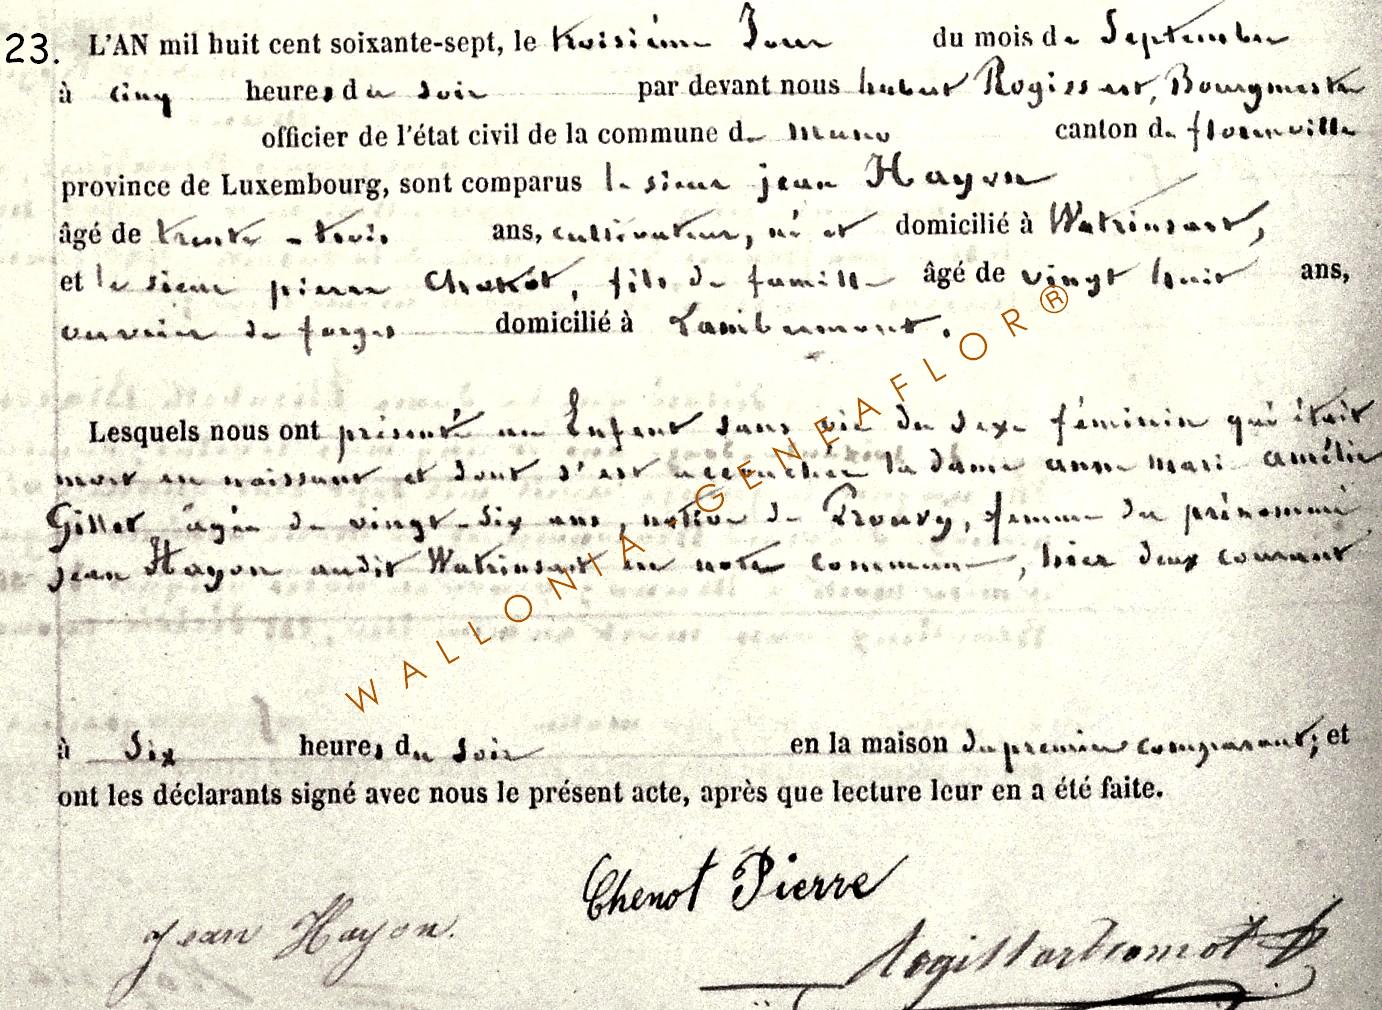 23. L'AN mil huit cent soixante-sept, le troisième Jour du mois de Septembre
à cinq heures du soir par devant nous hubert Rogissart, Bourgmestre
officier de l'état civil de la commune de muno canton de florenville
province de Luxembourg, sont comparus le sieur jean Hayon
âgé de trente-trois ans, cultivateur, né et domicilié à Watrinsart,
et le sieur pierre Chenot, fils de famille âgé de vingt huit ans,
ouvrier de forges domicilié à Lambermont.
Lesquels nous ont présenté un Enfant sans vie du sexe féminin qui était
mort en naissant et dont s'est accouchée la dame anne marie amélie
Gillet âgée de vingt-six ans, native de Prouvy, femme du prénommé
Jean Hayon audit Watrinsart en notre commune, hier deux courant
à Six heures du soir en la maison du premier comparant; et
ont les déclarants signé avec nous le présent acte, après que lecture leur en a été faite.
Chenot Pierre
Jean Hayon.
WALLONIA.GENEAFLOR®